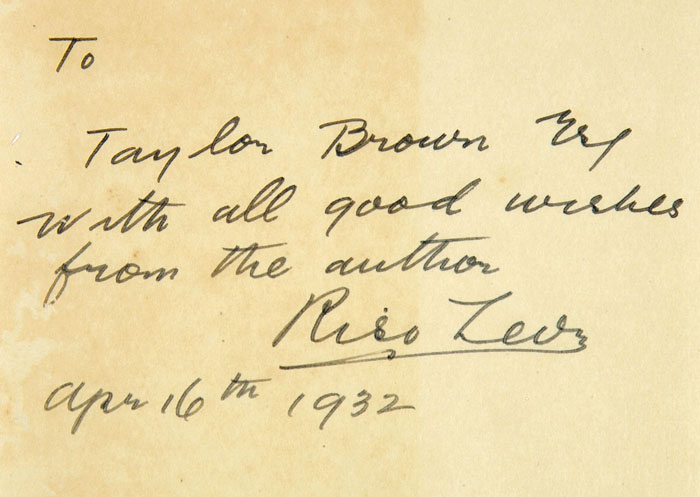 To
Taylor Brown Esq
with all good wishes
from the author
Riso Levi
Apr 16th 1932